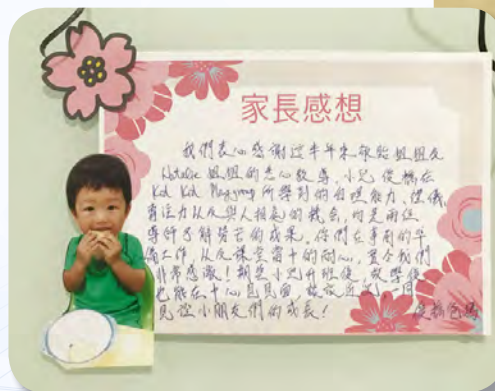 家長感想
我們衷心感謝這半年來欣貽姐姐及
Natalie 姐姐的悉心教導，小兒俊橋在
Kid Kid Playgroup 所學到的自理能力、禮儀、
專注力以及與人相處的機會，均是兩位
導師辛勞的成果。你們在事前的準
備工作，以及課堂當中的耐心，更令我們
非常感激！期望小兒升班後，放學後
也能在中心見見面，
見證小朋友們的成長！
爸媽